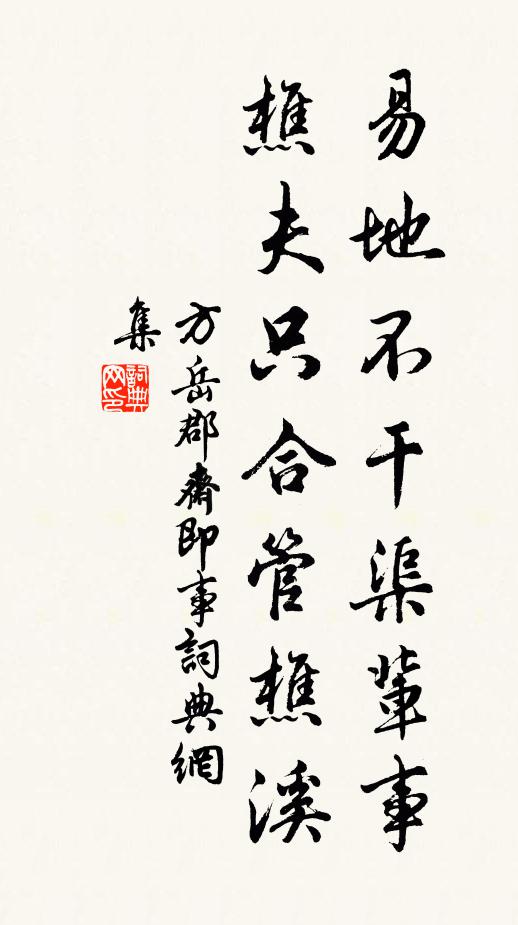 易地不干渠輩事
樵夫只合管樵溪
方岳郡齋即事詞典網
集
詞典网印